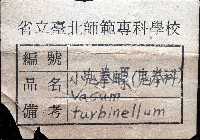 省立臺北師範專科學校
編號
品名 小鬼拳螺(鬼拳科)
Vasum
備考 turbinellum